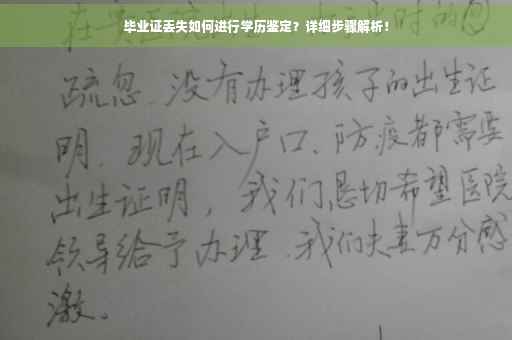 毕业证丢失如何进行学历鉴定？详细步骤解析！
疏忽、没有办理孩子的出生证
明、现在入户口、防疫都需要
出生证明，我们恳切希望医院
领导给予办理、我们夫妻万分感
激。